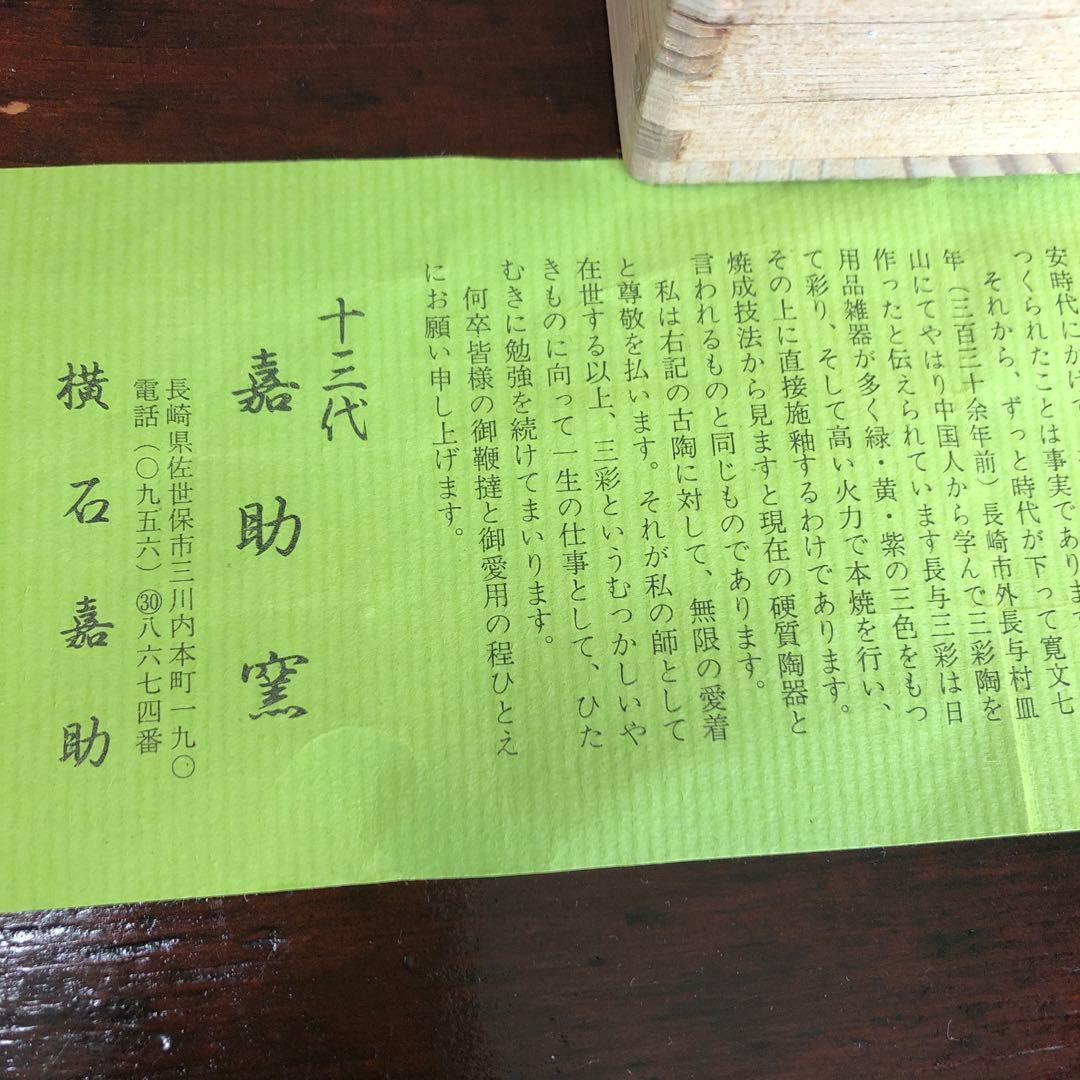 安時代にかけて
つくられたことは事実であります
それから、ずっと時代が下って寛文七
年（三百三十余年前）長崎市外長与村皿
山にてやはり中国人から学んで三彩陶を
作ったと伝えられています長与三彩は日
用品雑器が多く緑・黄・紫の三色をもっ
て彩り、そして高い火力で本焼を行い、
その上に直接施釉するわけであります。
焼成技法から見ますと現在の硬質陶器と
言われるものと同じものであります。
私は右記の古陶に対して、無限の愛着
と尊敬を払います。それが私の師として
在世する以上、三彩というむつかしいや
きものに向って一生の仕事として、ひた
むきに勉強を続けてまいります。
何卒皆様の御鞭撻と御愛用の程ひとえ
にお願い申し上げます。
十三代
嘉助窯
長崎県佐世保市三川内本町一九〇
電話（〇九五六）㉚八六七四番
横石嘉助